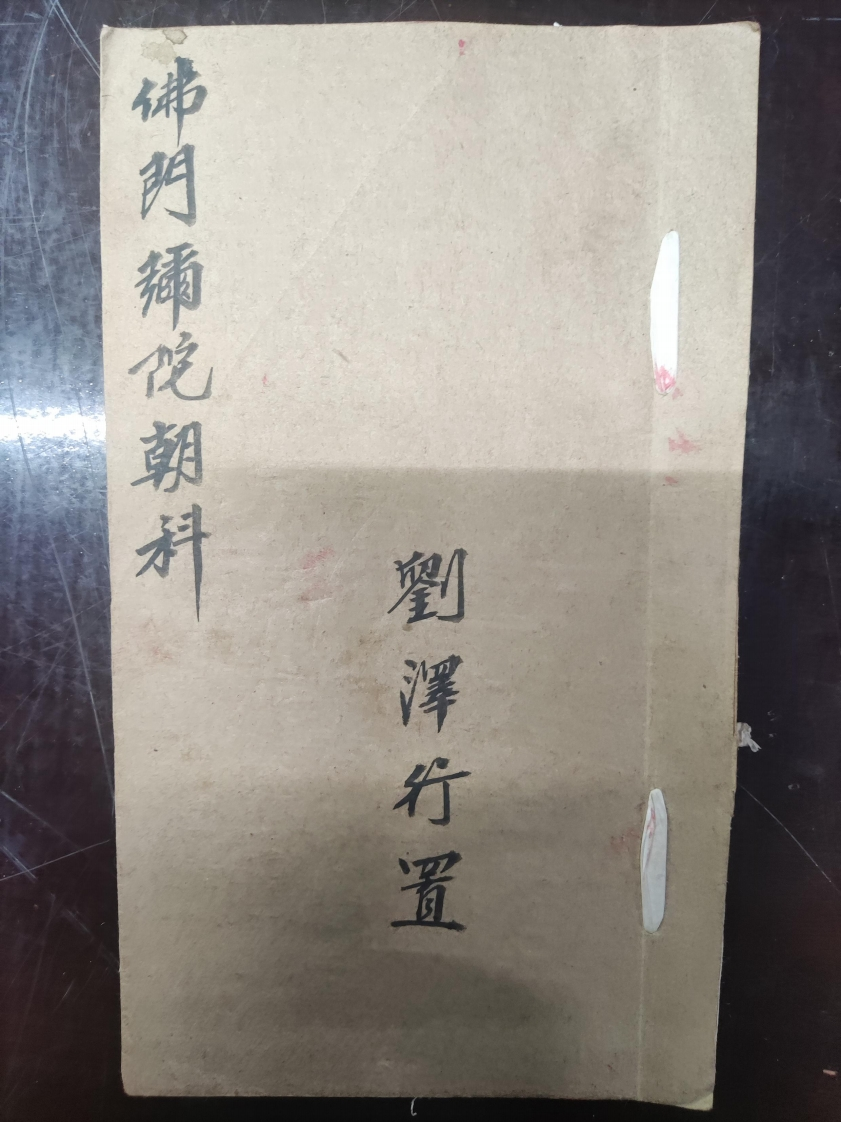 佛門彌陀朝科
劉澤行置